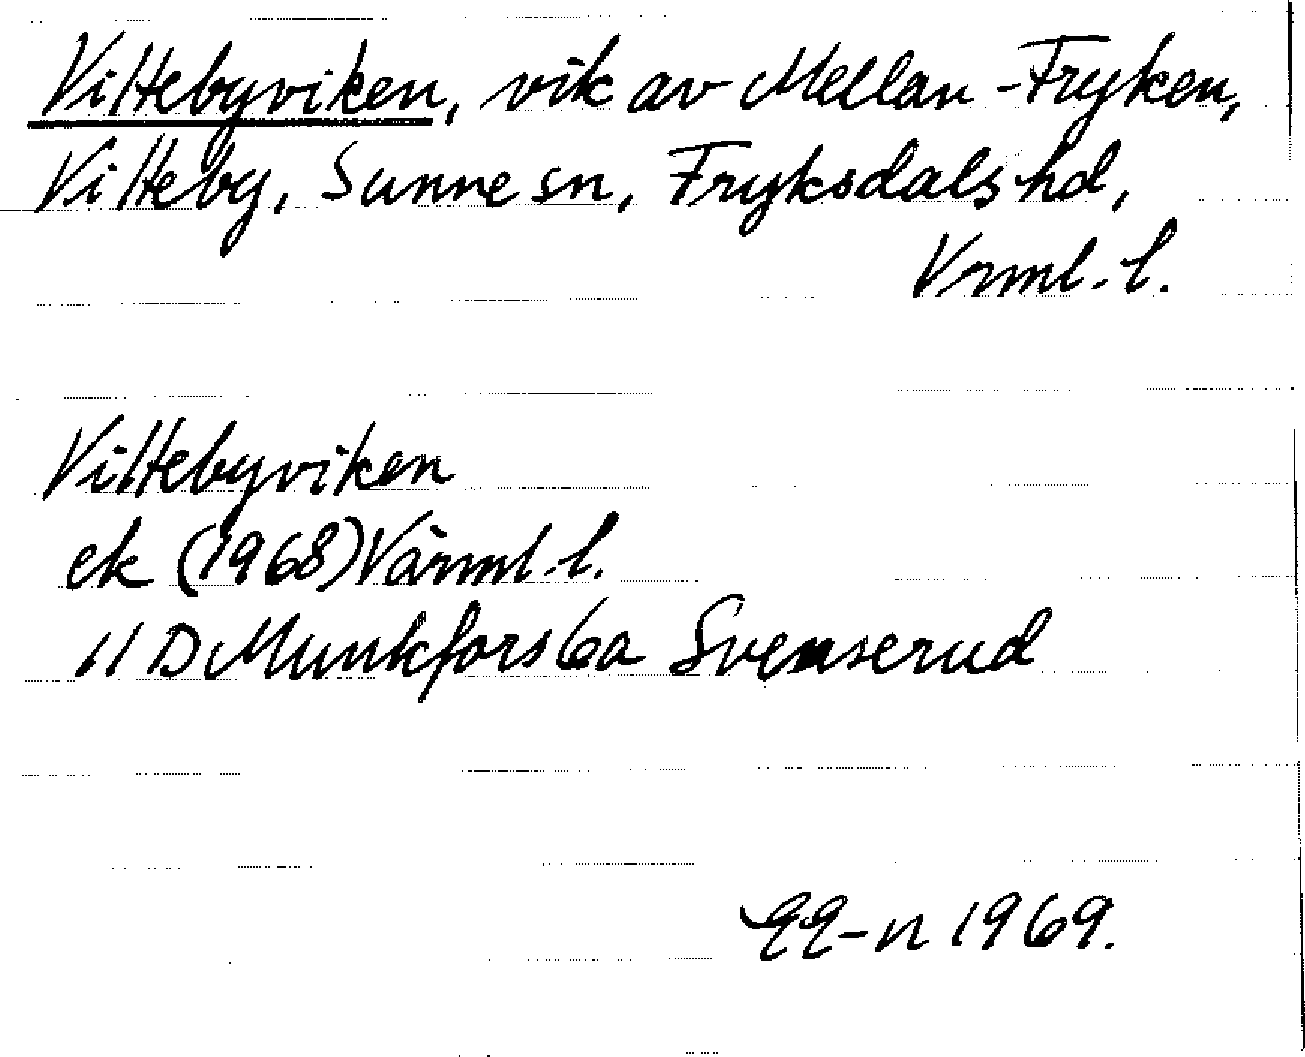 Vittebyviken, vik av Mellan-Fryken,
Vitteby, Sunne sn, Fryksdals hd,
Vrml. l.
Vittebyviken
ek (1968) Värml. l.
11 D Munkfors 6a Svenserud
EE-n 1969.